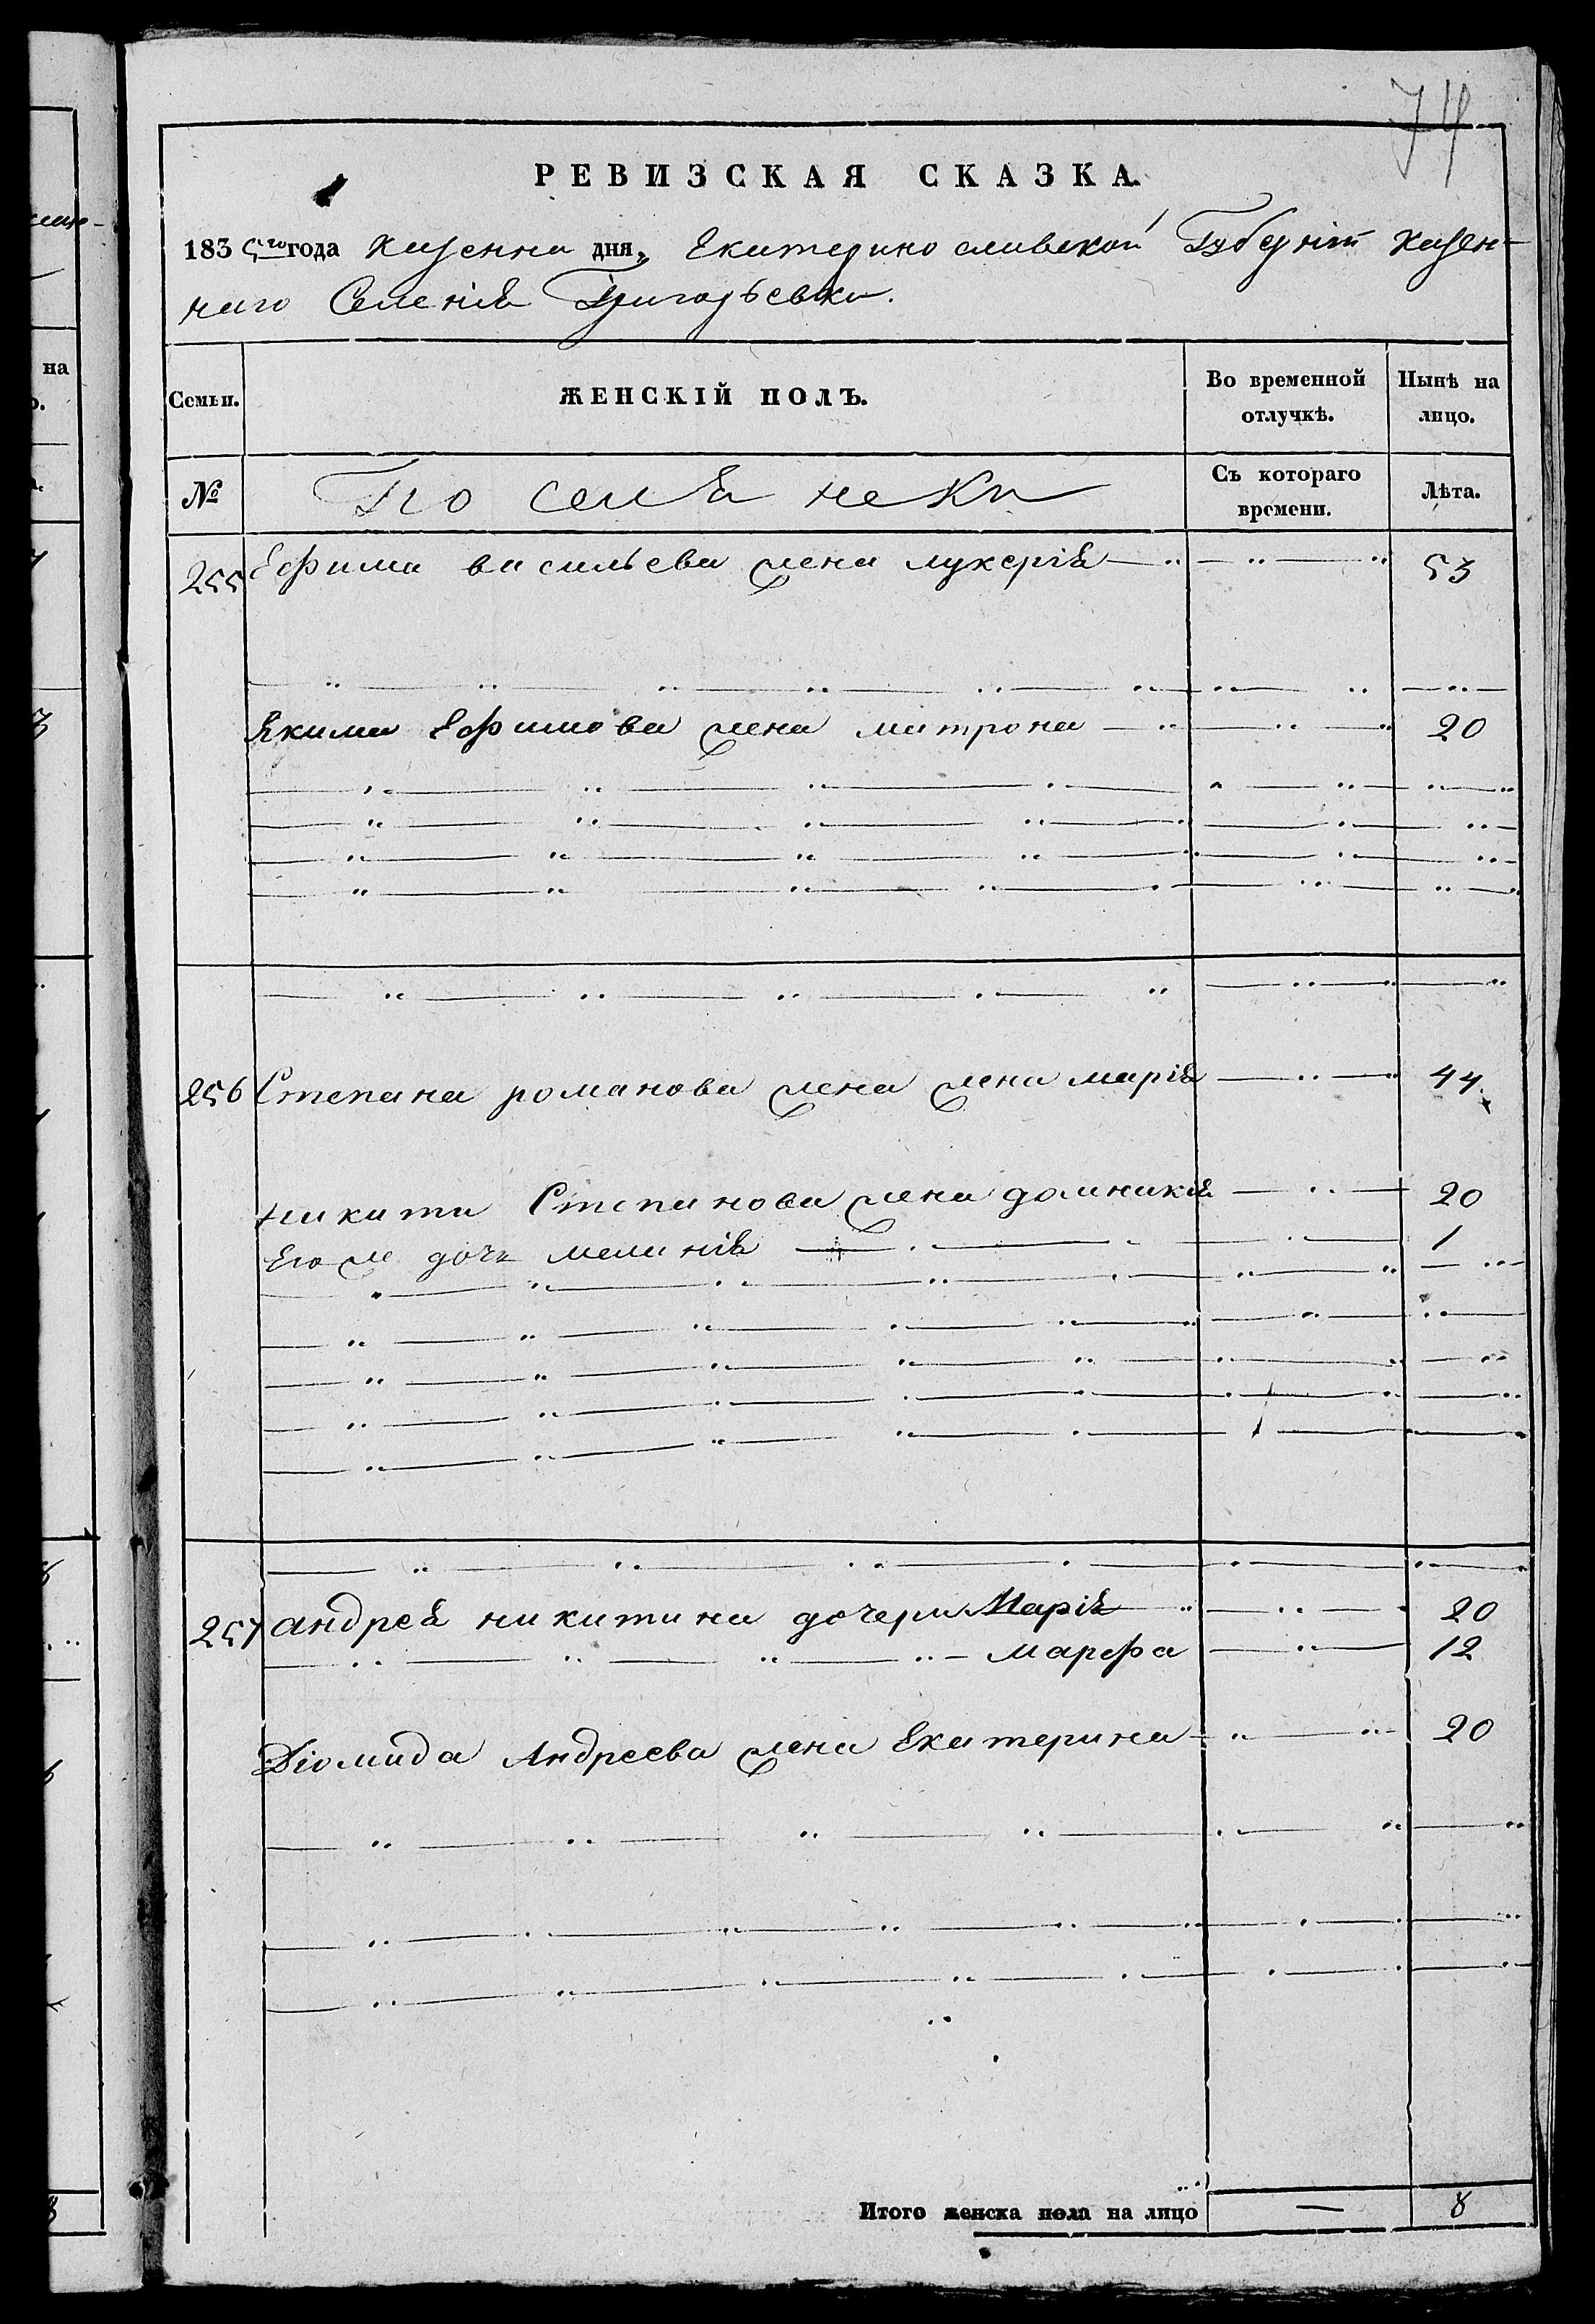 74
РЕВИЗСКАЯ СКАЗКА.
183 5го года казенна дня, Екатеринославской Губерніи казен-
наго Селенія Григорьевки.
Семьи.
ЖЕНСКІЙ ПОЛЪ.
Во временной отлучкѣ.
Нынѣ на лицо.
№
Поселянеки
Съ котораго времени.
Лѣта.
255 Ефима васильева жена лукерія 53
Якима Ефимова жена матрона 20
256 Степана романова жена жена марія 44
никиты Степанова жена домникія 20
Его ж дочь меланія 1
257 андрея никитина дочери Марія 20
марфа 12
Діомида Андреева жена Екатерина 20
Итого женска пола на лицо — 8
на